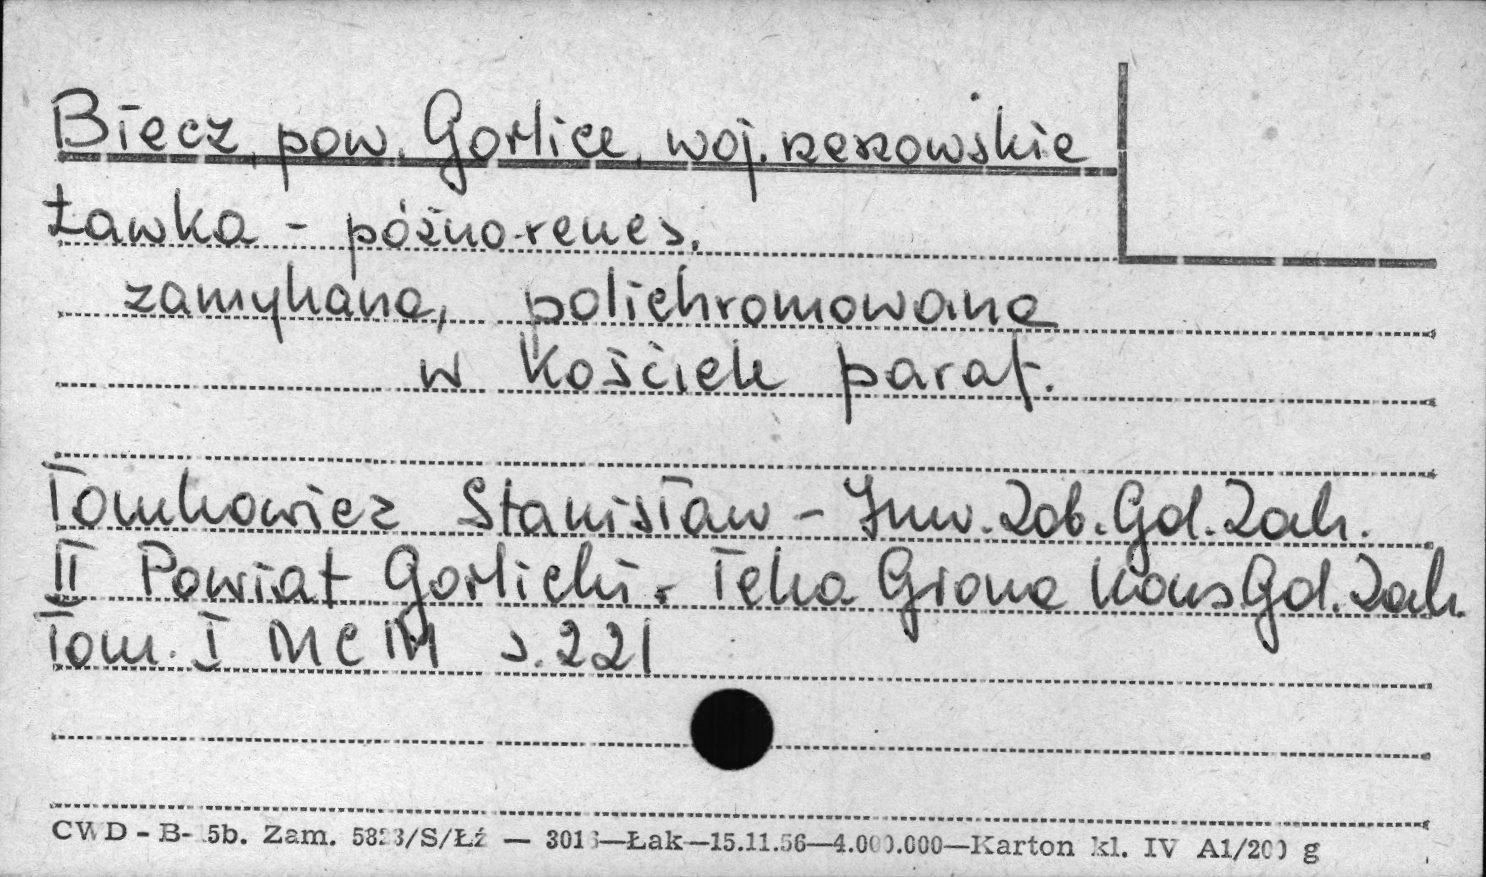 Biecz, pow. Gorlice, woj. rzeszowskie
Ławka - późno-renes.
zamykana, polichromowana
w kościele paraf.
Tomkowicz Stanisław - Inw. Zab. Gal. Zach.
II Powiat Gorlicki. Teka Grona Kons Gal. Zach.
Tom. I MCM s. 221
CWD - B- 5b. Zam. 5823/S/Łź — 3016—Łak—15.11.56—4.000.000—Karton kl. IV A1/200 g